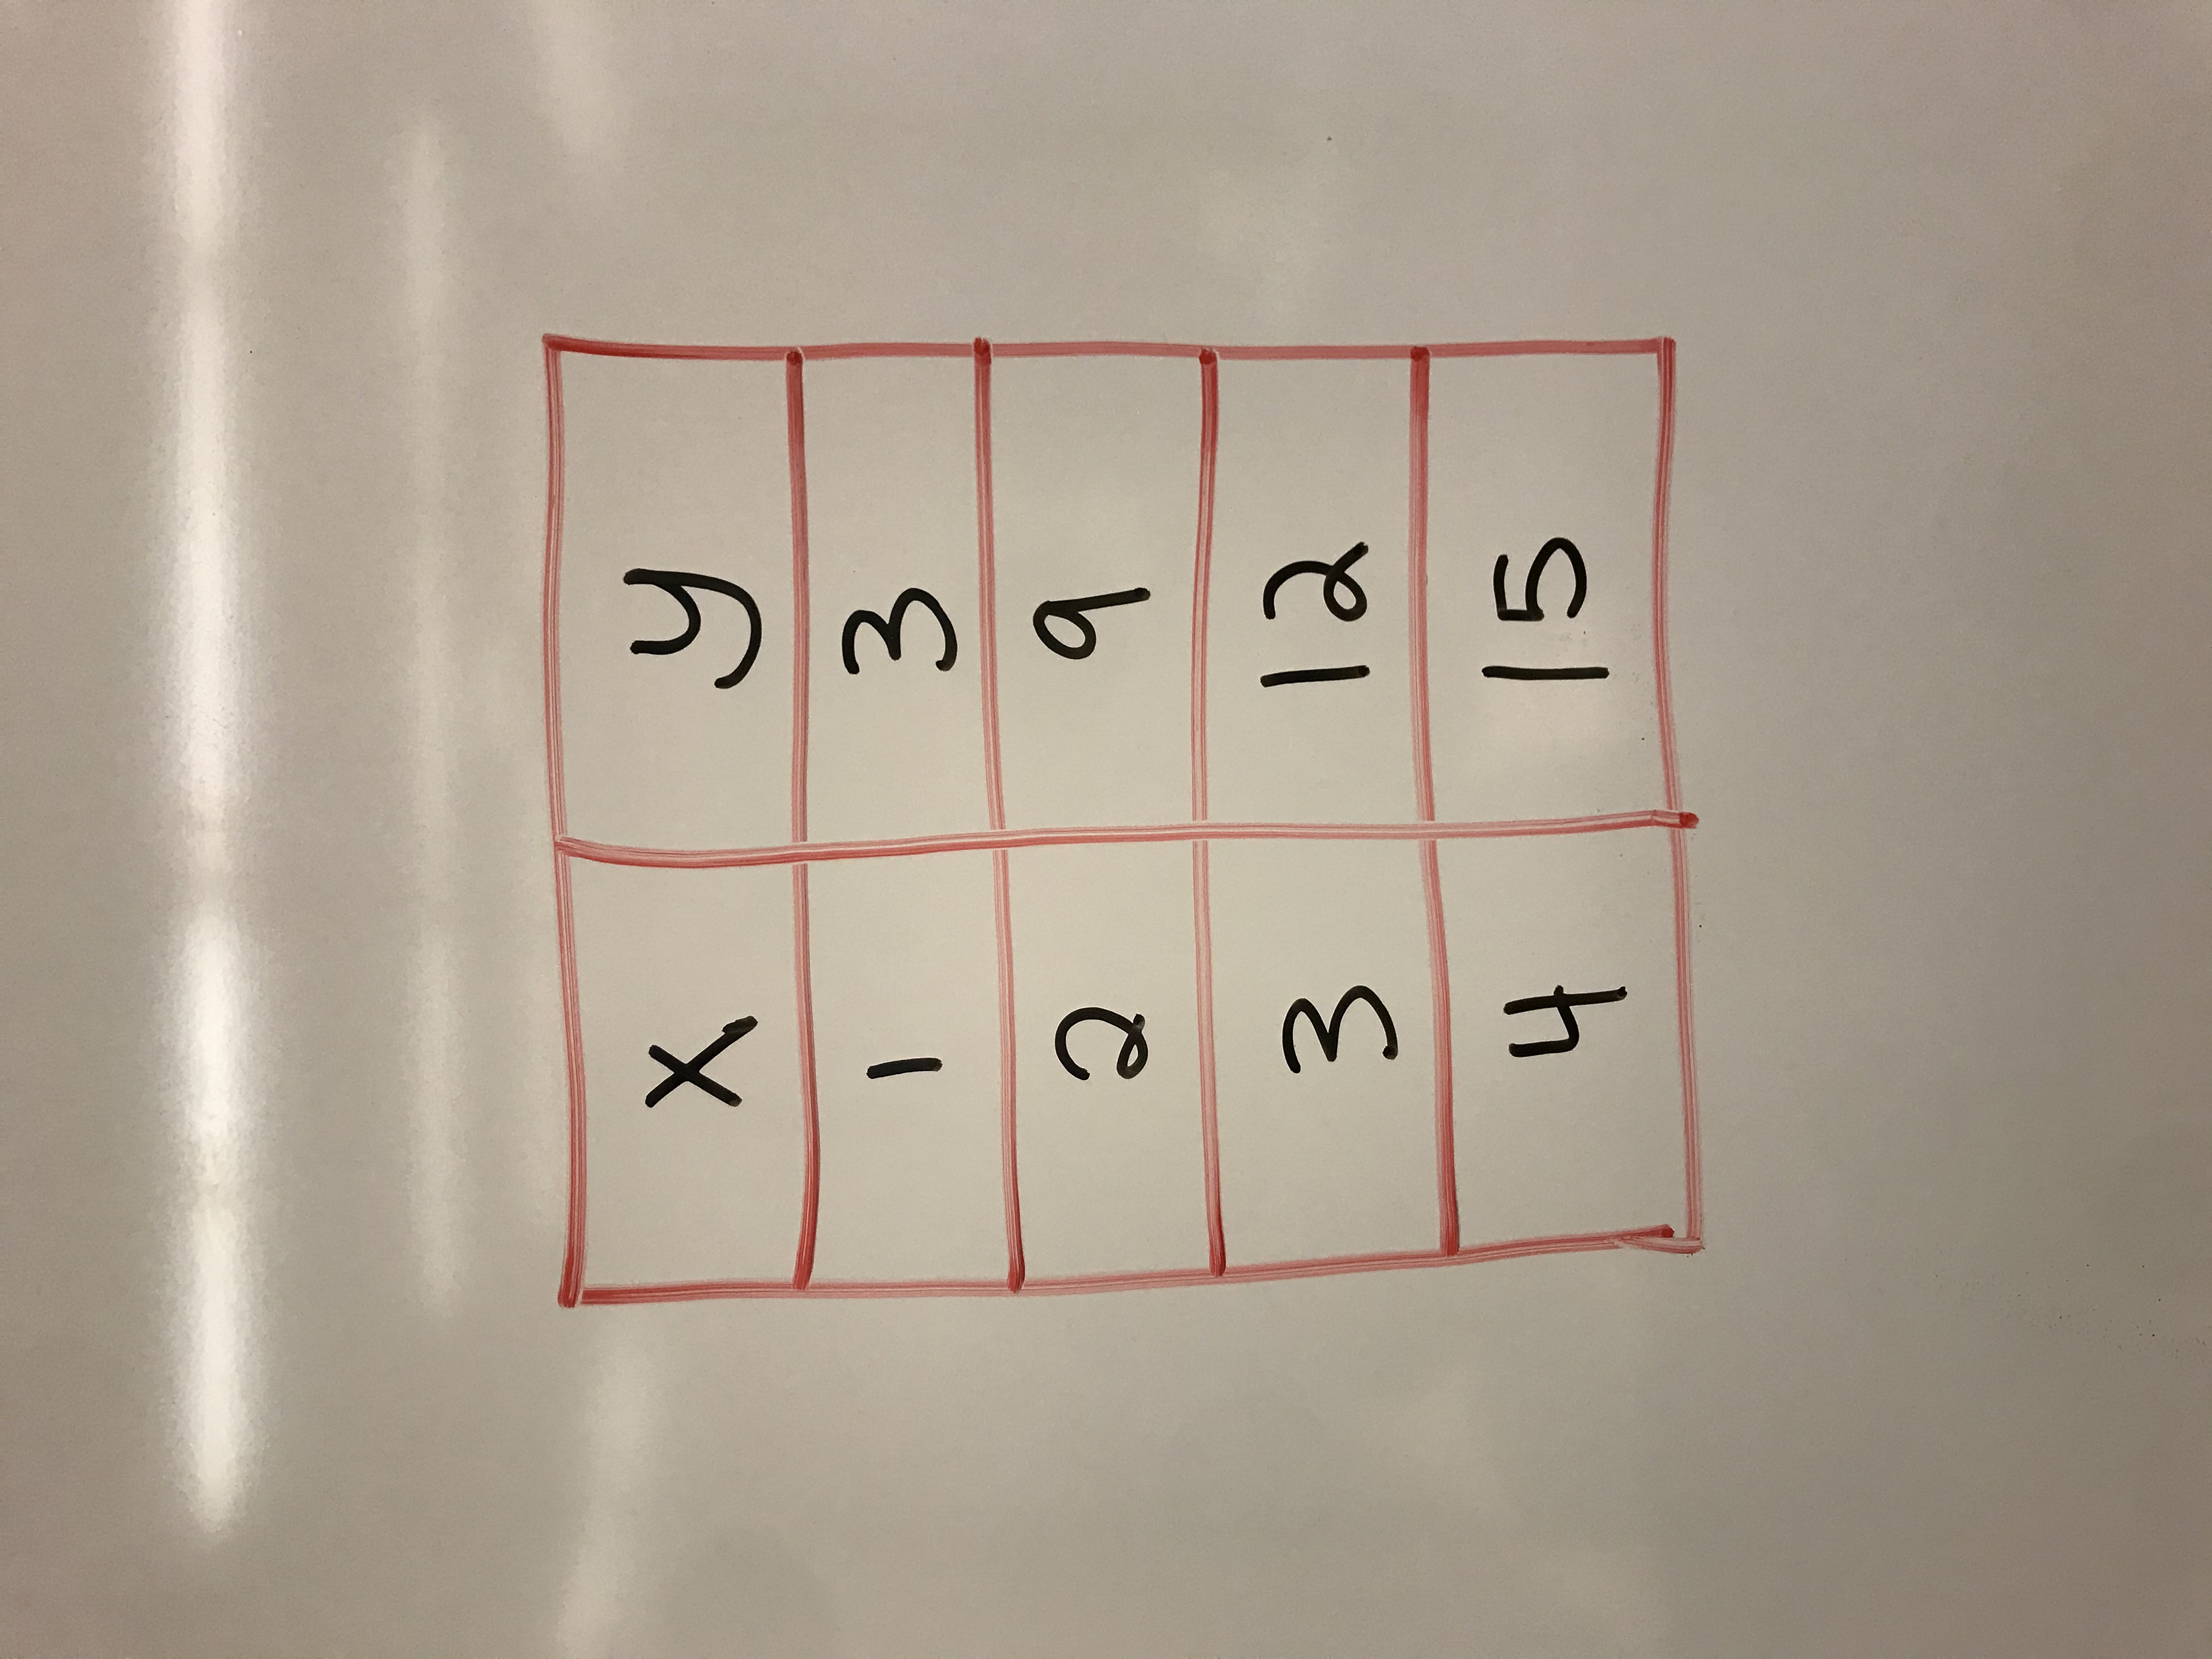 x y
1 3
2 9
3 12
4 15